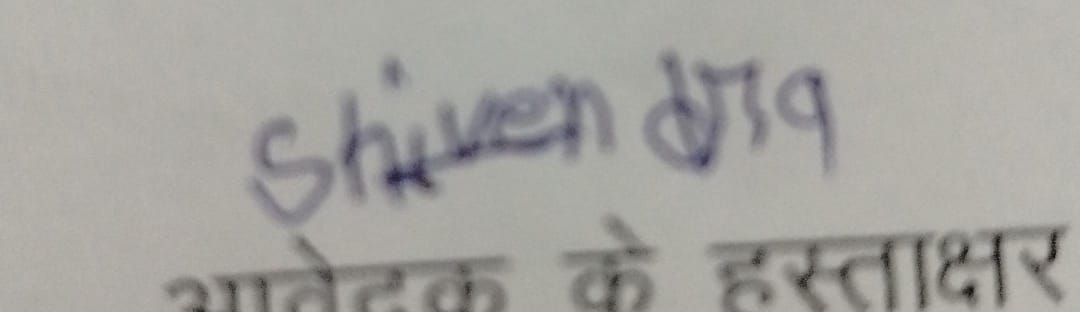 Shiven
आवेदक के हस्ताक्षर